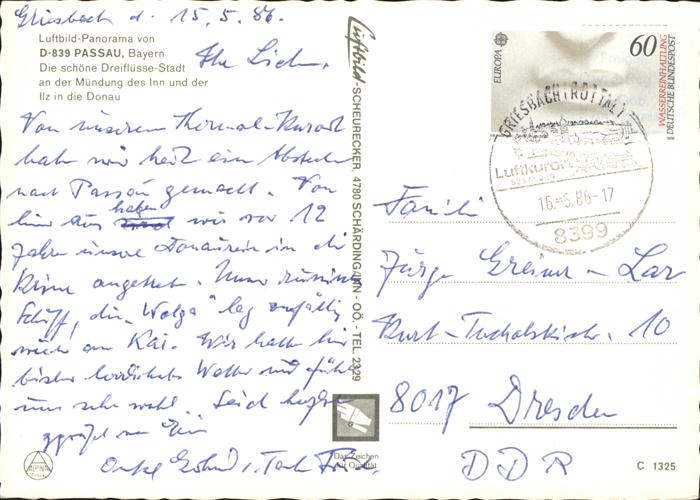 Griesbach d. 15.5.86.
Luftbild-Panorama von
D-839 PASSAU, Bayern
Die schöne Dreiflüsse-Stadt
an der Mündung des Inn und der
Ilz in die Donau
Ihr Lieben,
Von unserem Thermal-Kurort
haben wir heut ein Abstecher
nach Passau gemacht. Von
hier aus haben wir vor 12
Jahren unsere Donaureise in die
Krim angetreten. Unser russisches
Schiff, die „Wolga" lag zufällig
auch am Kai. Wir hatten hier
bisher herrliches Wetter und fühlen
uns sehr wohl. Seid herzlich
gegrüßt von
Onkel u. Tante
Luftbild-SCHEURECKER 4780 SCHÄRDING/INN - OÖ. - TEL. 2329
Das Zeichen
für Qualität
ALPINA
EUROPA
60
WASSERREINHALTUNG
DEUTSCHE BUNDESPOST
GRIESBACH I ROTTAL 1
Luftkurort
16.-5.86-17
8399
Familie
Jürgen Greiner
Kurt-Tucholskistr. 10
8017 Dresden
DDR
C 1325